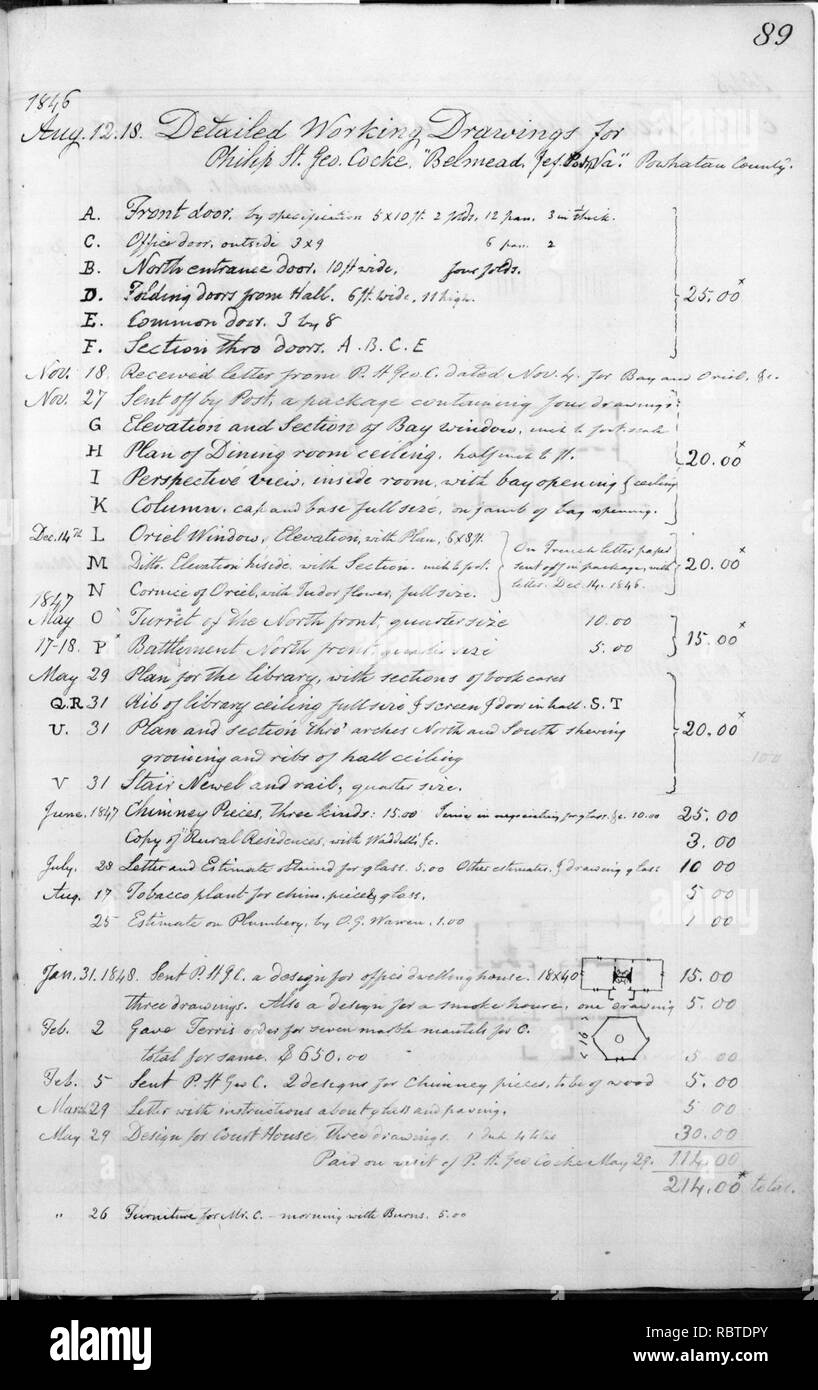 89
1846
Aug. 12.18. Detailed Working Drawings for
Philip St. Geo. Cocke, "Belmead, Va." Powhatan County.
A. Front door, by specification 5 x 10 ft. 2 folds, 12 pan. 3 in thick.
C. Office door, outside 3 x 9 6 pan. 2
B. North entrance door. 10 ft wide, four folds.
D. Folding doors from Hall. 6 ft. wide, 11 high. 25.00*
E. Common door. 3 by 8
F. Section thro doors. A. B. C. E
Nov. 18. Received letter from P. St Geo C. dated Nov. 4. for Bay and Oriel, &c.
Nov. 27 Sent off by Post, a package containing four drawings:
G Elevation and Section of Bay window, inch to foot scale
H Plan of Dining room ceiling, half inch to ft. 20.00*
I Perspective view, inside room, with bay opening & ceiling
K Column, cap and base full size, on jamb of bay opening.
Dec. 14th L Oriel Window, Elevation, with Plan, 6 x 8 ft. On French letter paper
M Ditto. Elevation inside, with Section. inch to foot. sent off in package, with 20.00*
N Cornice of Oriel, with Tudor flower, full size. letter. Dec. 14. 1846.
1847
May O Turret of the North front, quarter size 10.00
17-18. P* Battlement North front, quarter size 5.00 15.00*
May 29 Plan for the library, with sections of book cases
Q.R 31 Rib of library ceiling full size & screen & door in hall. S. T
U. 31 Plan and section thro' arches North and South shewing 20.00*
groining and ribs of hall ceiling
V 31 Stair Newel and rail, quarter size.
June. 1847 Chimney Pieces, three kinds: 15.00 Services in negociating for glass. &c. 10.00 25.00
Copy of "Rural Residences, with &c. 3.00
July. 28 Letter and Estimate obtained for glass. 5.00 Other estimates. & drawing glass 10 00
Aug. 17 Tobacco plant for chim. piece & glass. 5 00
25 Estimate on Plumbery, by O.G. Warren. 1.00 1 00
100
Jan. 31. 1848. Sent P. St G C. a design for office dwelling house. 18 x 40 15.00
three drawings. Also a design for a smoke house, one drawing 5.00
Feb. 2 Gave Ferris order for seven marble mantels for C. <16>
total for same, $650.00 5 00
Feb. 5 Sent P. St Geo C. 2 designs for Chimney pieces, to be of wood 5.00
March 29 Letter with instructions about glass and paving. 5 00
May. 29 Design for Court House, three drawings. 30.00
Paid on visit of P. St. Geo Cocke May 29. 114.00
214.00* total.
" 26 Furniture for Mr. C. – morning with Burns. 5.00
alamy
alamy
Image ID: RBTDPY
www.alamy.com